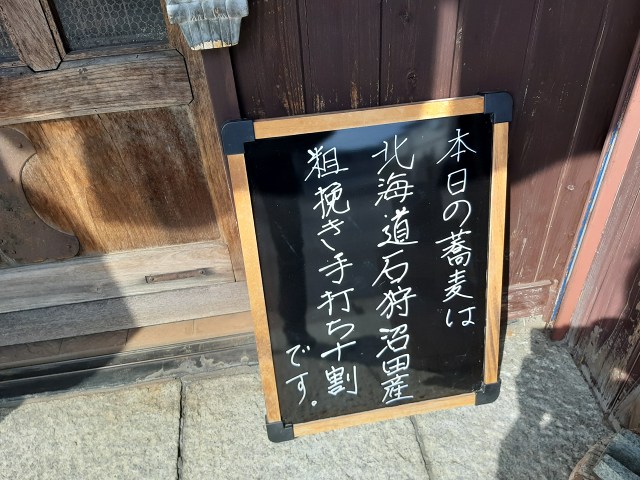 本日の蕎麦は
北海道石狩沼田産
粗挽き手打ち十割
です。